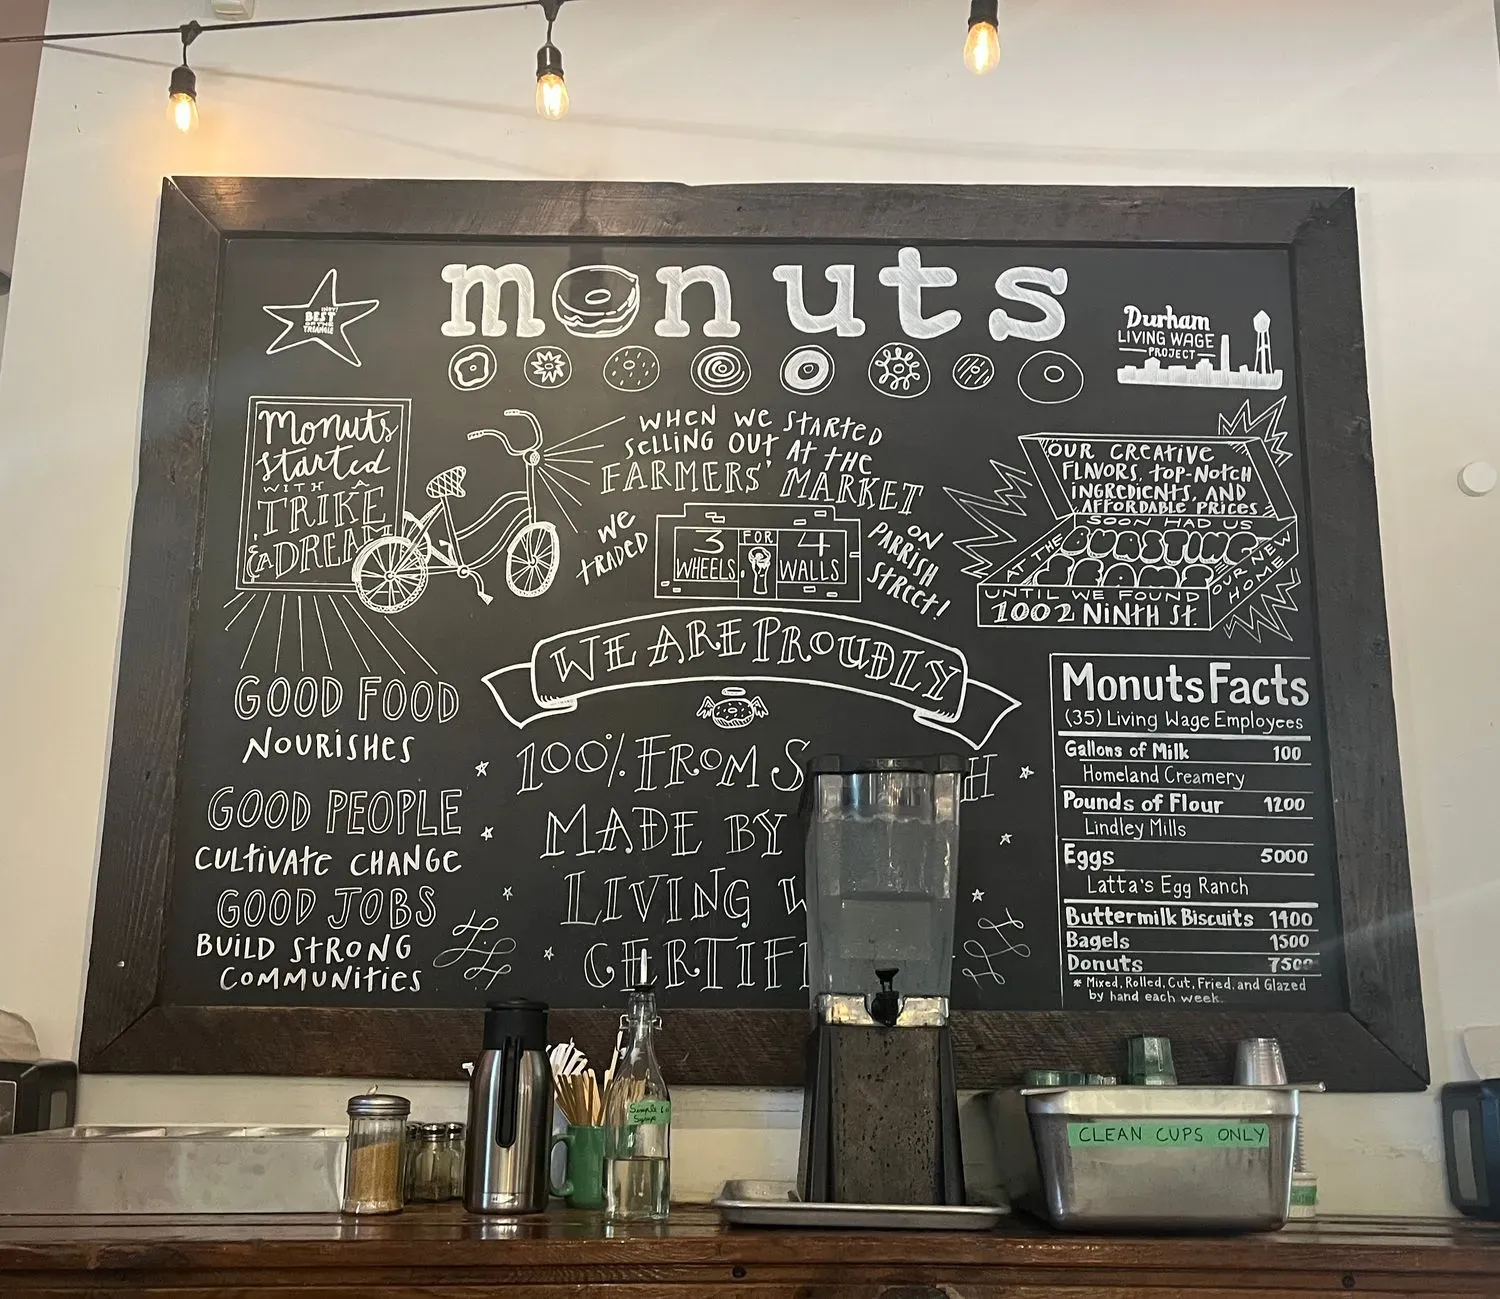 monuts
BEST
OF THE
TRIANGLE
Durham
LIVING WAGE
PROJECT
Monuts
started
WITH A
TRIKE
& A DREAM
WHEN WE STARTED
SELLING OUT AT THE
FARMERS' MARKET
WE
TRADED
3 FOR 4
WHEELS WALLS
ON
PARRISH
STREET!
OUR CREATIVE
FLAVORS, TOP-NOTCH
INGREDIENTS, AND
AFFORDABLE PRICES
SOON HAD US
BURSTING
AT THE
SEAMS
UNTIL WE FOUND
OUR NEW
HOME
1002 NINTH ST.
GOOD FOOD
NOURISHES
GOOD PEOPLE
CULTIVATE CHANGE
GOOD JOBS
BUILD STRONG
COMMUNITIES
WE ARE PROUDLY
100% FROM S H
MADE BY
LIVING W
CERTIFI
Monuts Facts
(35) Living Wage Employees
Gallons of Milk 100
Homeland Creamery
Pounds of Flour 1200
Lindley Mills
Eggs 5000
Latta's Egg Ranch
Buttermilk Biscuits 1400
Bagels 1500
Donuts 7500
* Mixed, Rolled, Cut, Fried, and Glazed
by hand each week.
Simple
Syrup
CLEAN CUPS ONLY